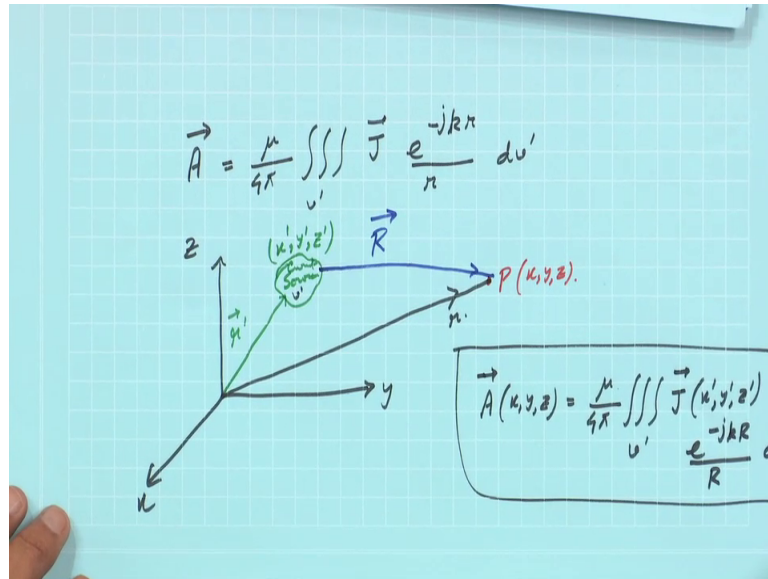 A⃗ = μ/4π ∭_v' J⃗ e^{-jkr}/r dv'
z
(x', y', z')
R⃗
Source
v'
P(x,y,z).
r⃗'
r.
y
x
A⃗(x,y,z) = μ/4π ∭_v' J⃗(x',y',z')
e^{-jkR}/R